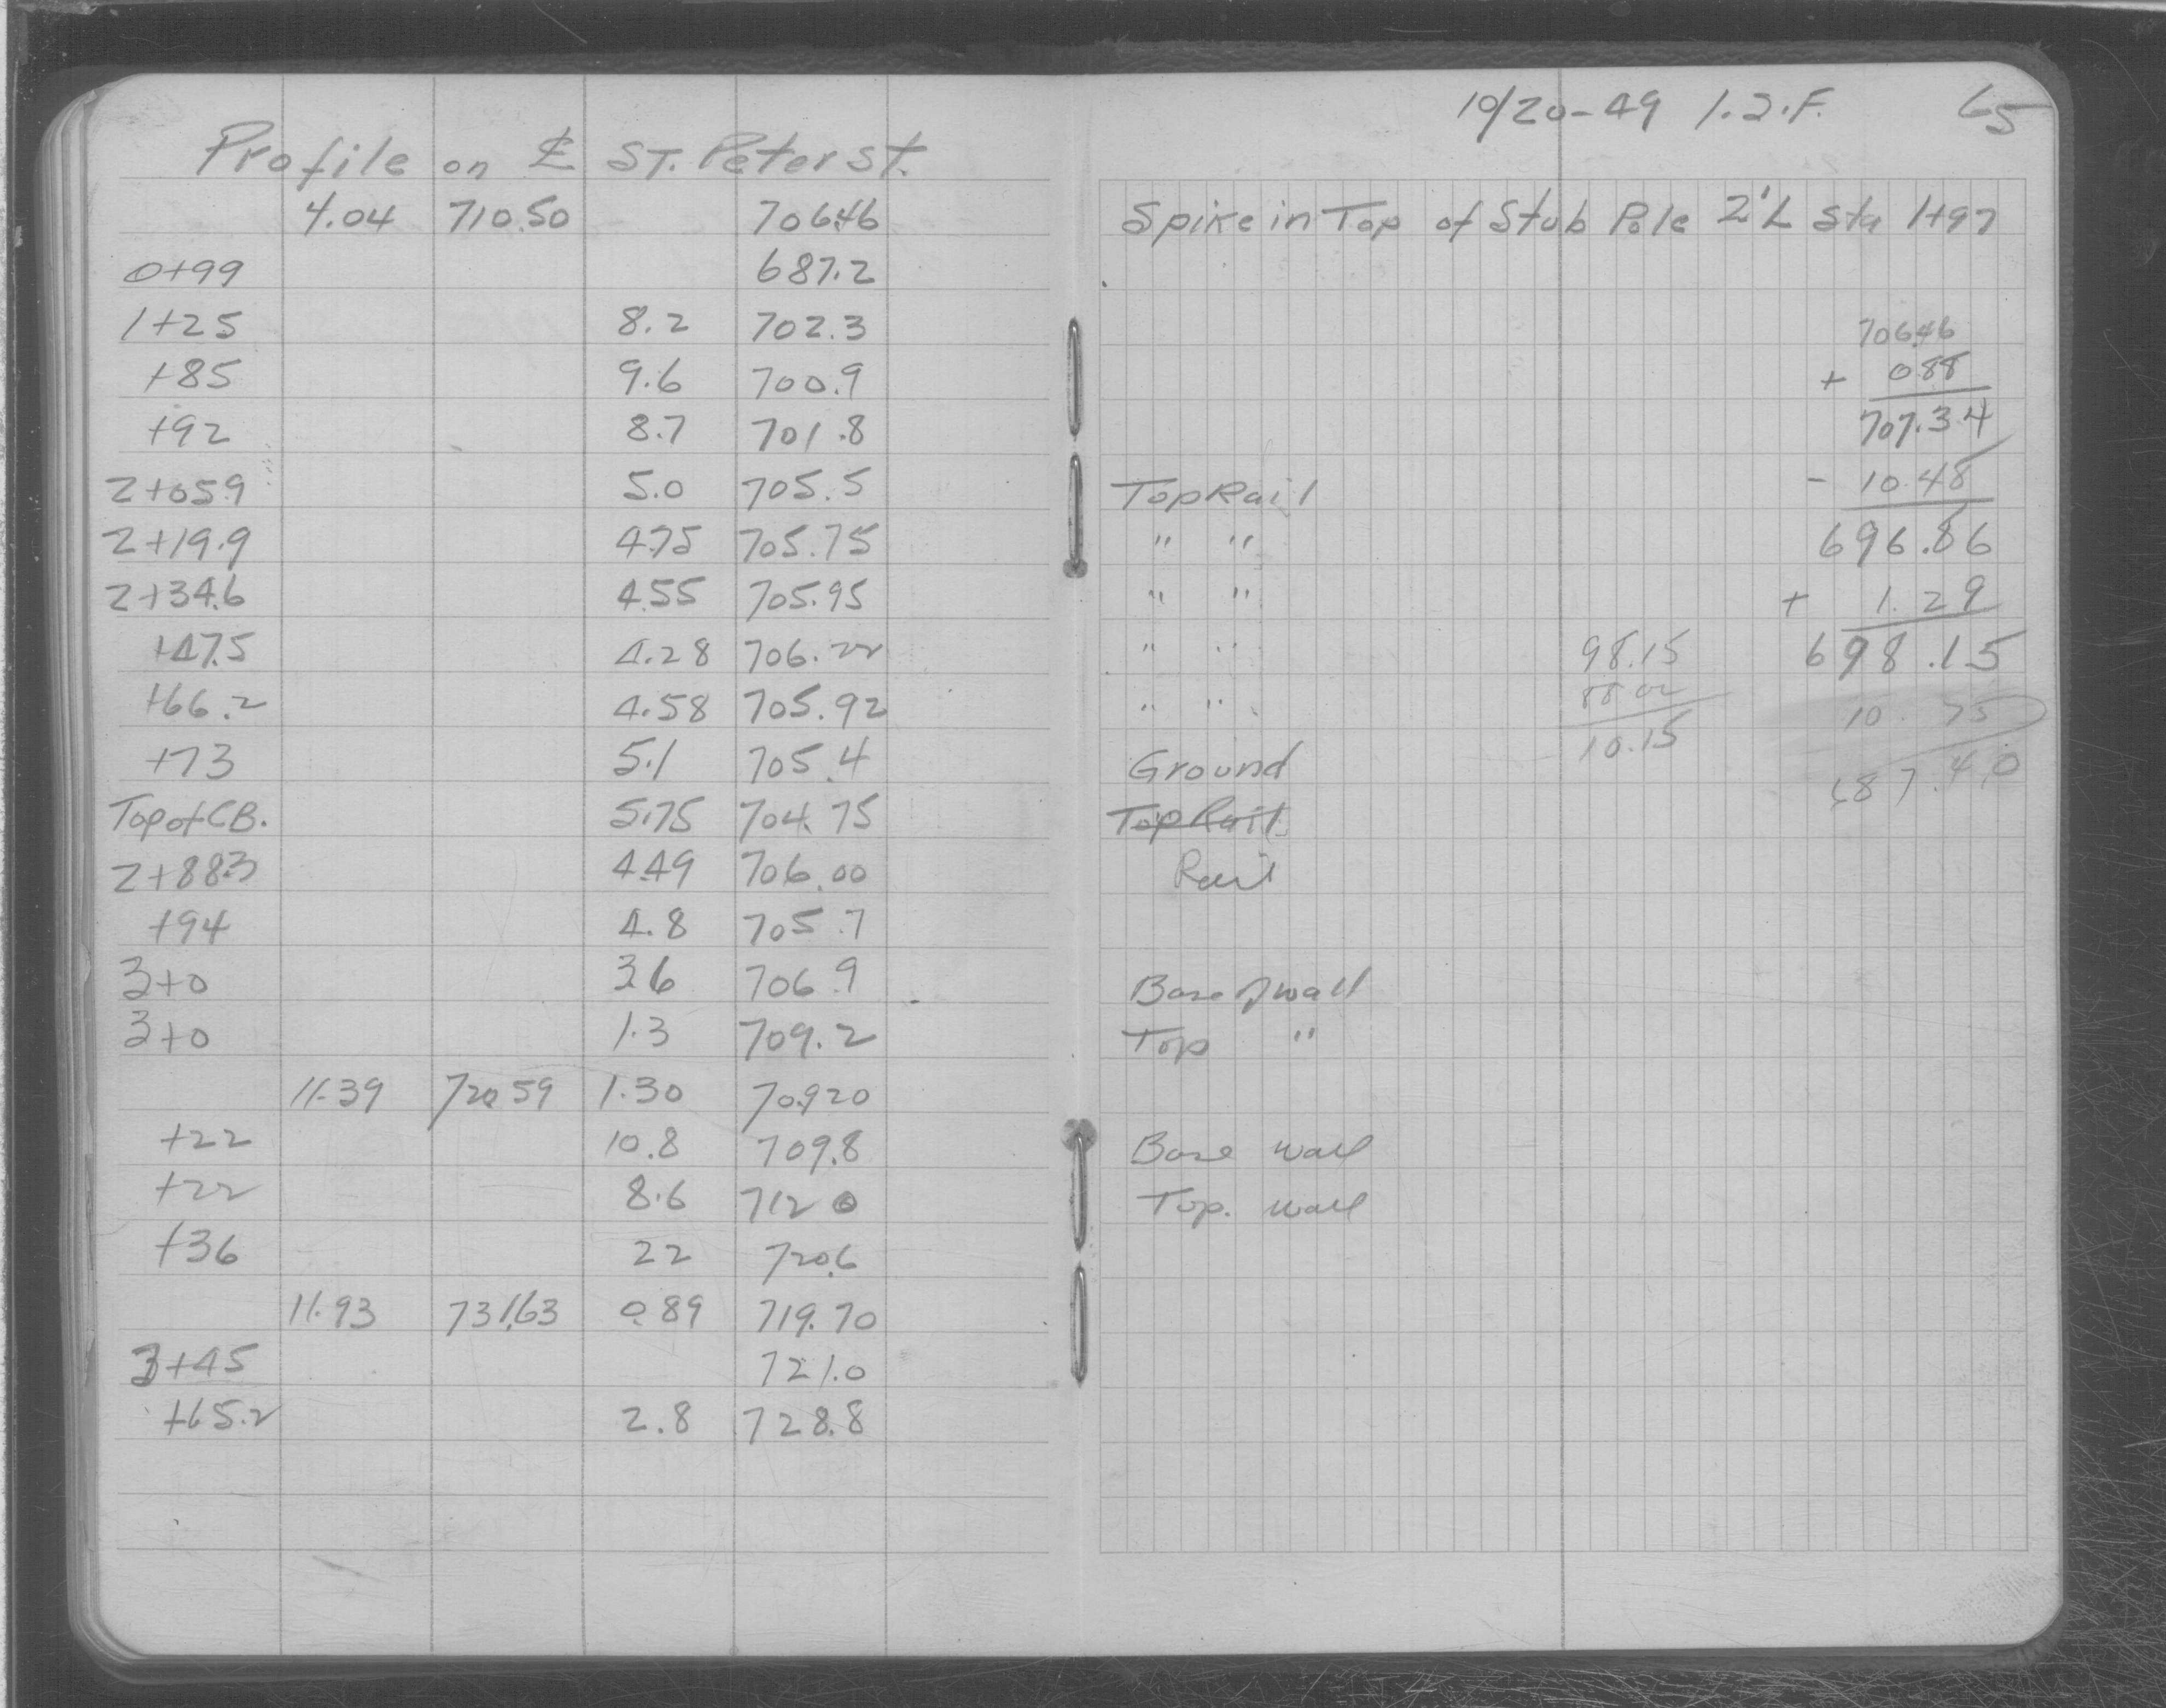 Profile on ℄ ST. Peter st.
4.04 710.50 706.46
0+99 687.2
1+25 8.2 702.3
+85 9.6 700.9
+92 8.7 701.8
2+05.9 5.0 705.5
2+19.9 4.75 705.75
2+34.6 4.55 705.95
+47.5 4.28 706.22
+66.2 4.58 705.92
+73 5.1 705.4
Top of C.B. 5.75 704.75
2+88.3 4.49 706.00
+94 4.8 705.7
3+0 3.6 706.9
3+0 1.3 709.2
11.39 720.59 1.30 709.20
+22 10.8 709.8
+22 8.6 712 0
+36 22 720.6
11.93 731.63 0.89 719.70
3+45 721.0
+65.2 2.8 728.8
10/20-49 65
Spike in Top of Stub Pole 2'L Sta 1+97
706.46
+ 0.88
707.34
- 10.48
696.86
+ 1.29
698.15
10.75
687.40
98.15
88.00
10.15
Top Rail
" "
" "
" "
" "
Ground
Top Rail
Rail
Base of wall
Top "
Base wall
Top. wall